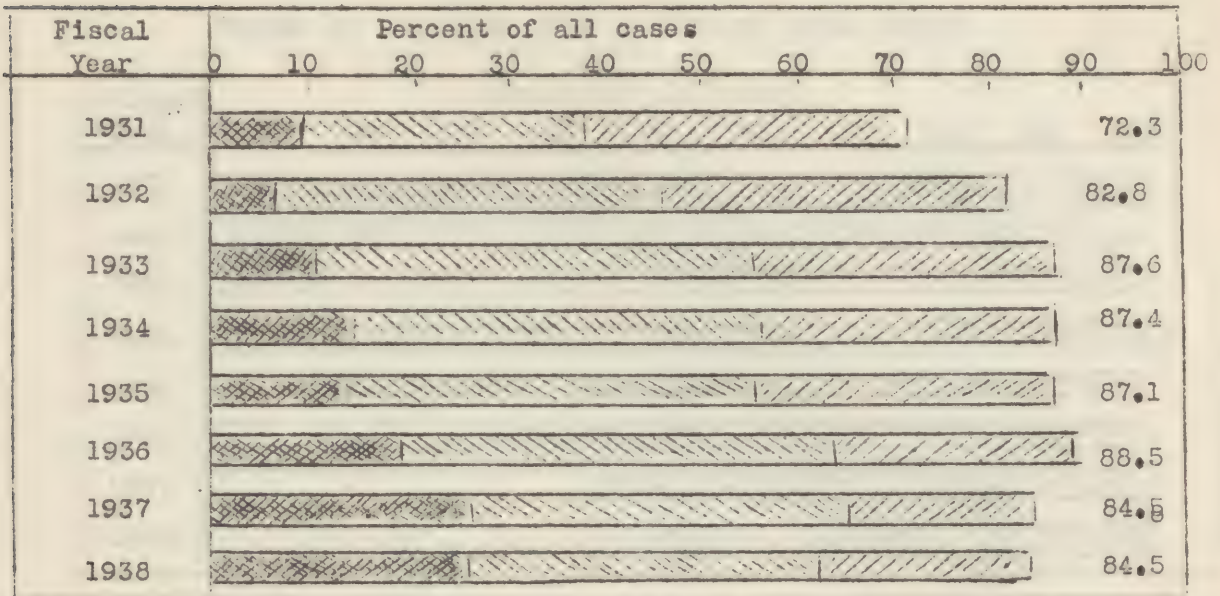 Fiscal Percent of all cases
Year 0 10 20 30 40 50 60 70 80 90 100
1931 72.3
1932 82.8
1933 87.6
1934 87.4
1935 87.1
1936 88.5
1937
1938 84.5